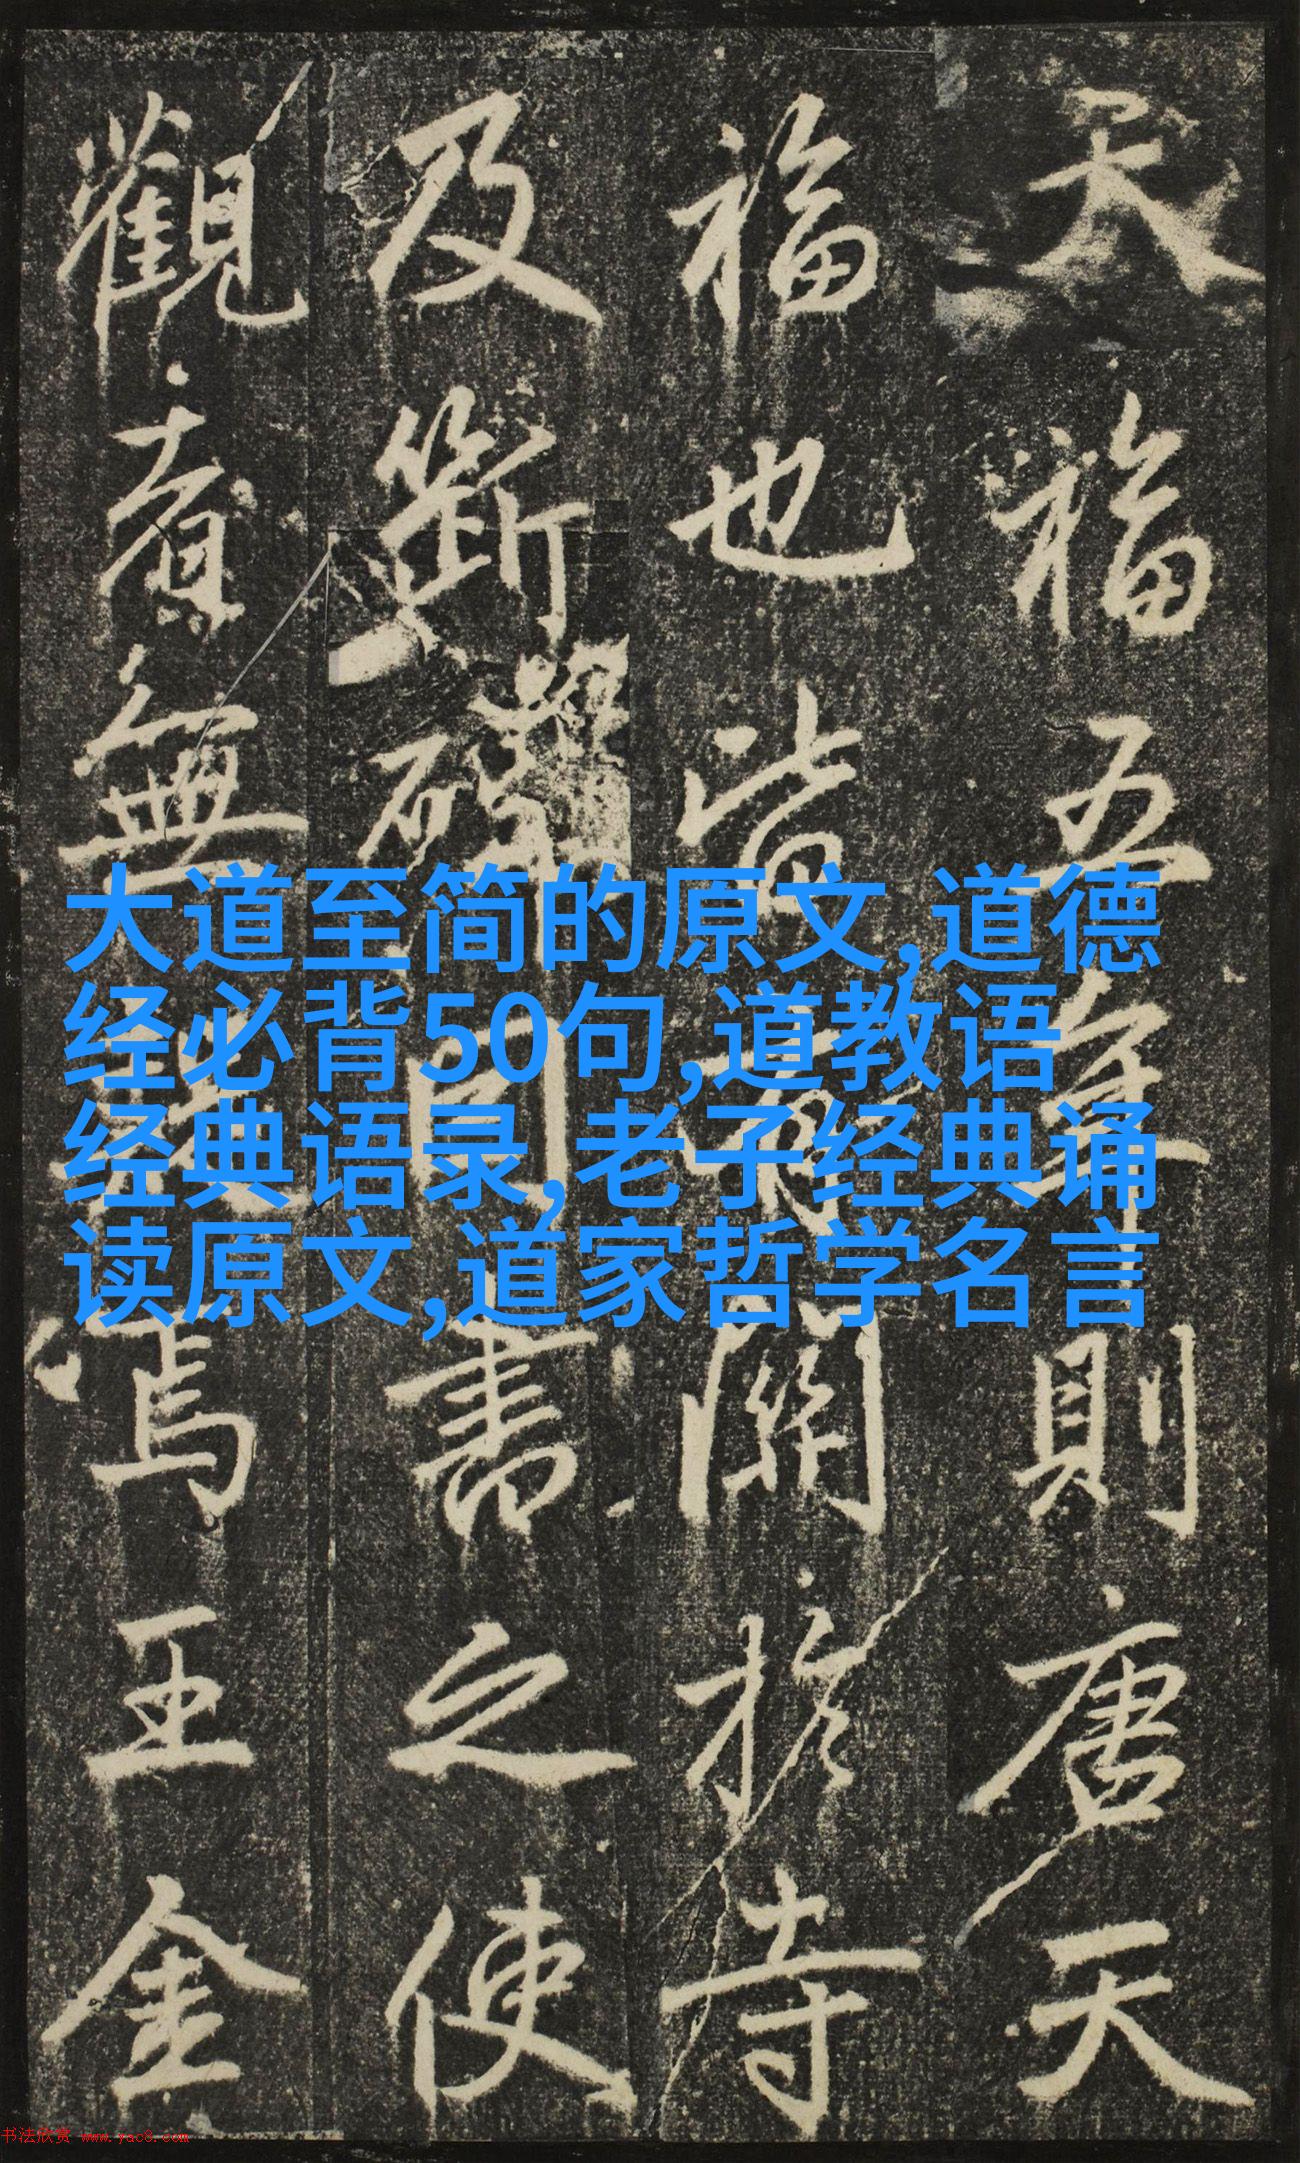 天福五年則唐天
福也皆有關於寺
及斷碑因書之使
觀者無
焉王金
大道至简的原文,道德
经必背50句,道教语
经典语录,老子经典诵
读原文,道家哲学名言
书法欣赏 www.yac8.com